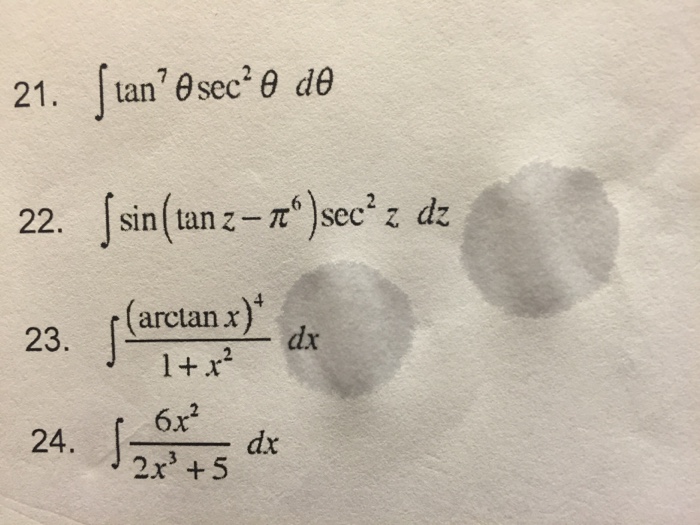 21. ∫ tan⁷ θ sec² θ dθ
22. ∫ sin(tan z − π⁶) sec² z dz
23. ∫ (arctan x)⁴ / 1 + x² dx
24. ∫ 6x² / 2x³ + 5 dx